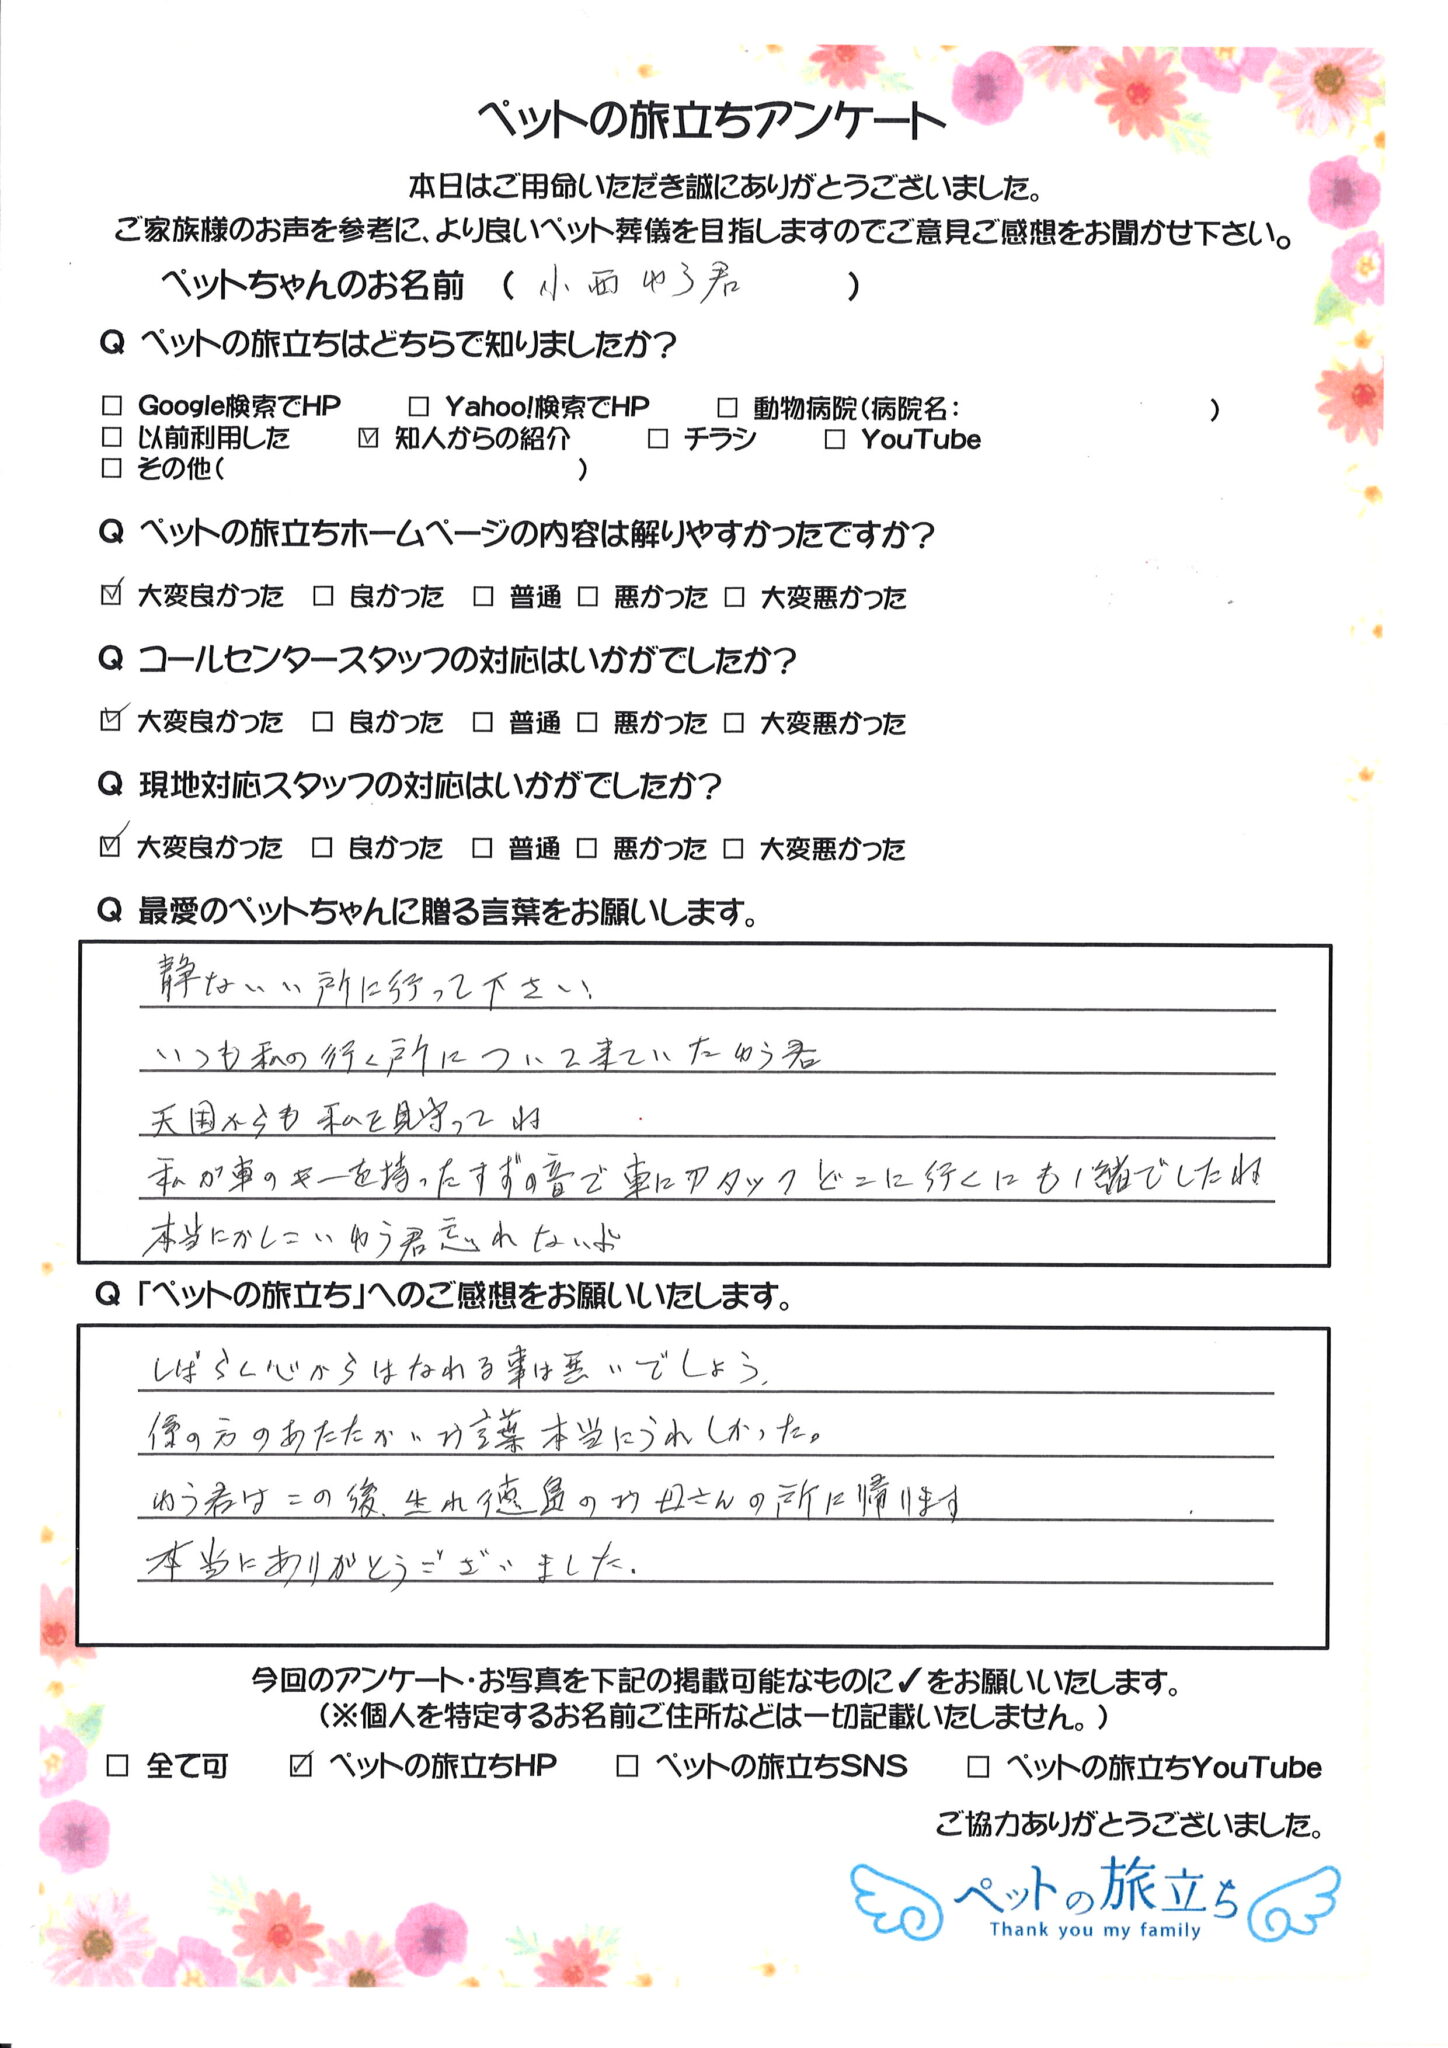 ペットの旅立ちアンケート
本日はご用命いただき誠にありがとうございました。
ご家族様のお声を参考に、より良いペット葬儀を目指しますのでご意見ご感想をお聞かせ下さい。
ペットちゃんのお名前 ( 小西ゆう君 )
Q ペットの旅立ちはどちらで知りましたか?
□ Google検索でHP □ Yahoo!検索でHP □ 動物病院(病院名: )
□ 以前利用した ☑ 知人からの紹介 □ チラシ □ YouTube
□ その他( )
Q ペットの旅立ちホームページの内容は解りやすかったですか?
☑ 大変良かった □ 良かった □ 普通 □ 悪かった □ 大変悪かった
Q コールセンタースタッフの対応はいかがでしたか?
☑ 大変良かった □ 良かった □ 普通 □ 悪かった □ 大変悪かった
Q 現地対応スタッフの対応はいかがでしたか?
☑ 大変良かった □ 良かった □ 普通 □ 悪かった □ 大変悪かった
Q 最愛のペットちゃんに贈る言葉をお願いします。
静ないい所に行って下さい
いつも私の行く所について来ていたゆう君
天国からも私を見守ってね
私が車のキーを持ったすずの音で車にアタックどこに行くにも1緒でしたね
本当にかしこいゆう君忘れないよ
Q 「ペットの旅立ち」へのご感想をお願いいたします。
しばらく心からはなれる事は無いでしょう。
係の方のあたたかいお言葉本当にうれしかった。
ゆう君はこの後、生れ徳島のお母さんの所に帰ります
本当にありがとうございました.
今回のアンケート・お写真を下記の掲載可能なものに✓をお願いいたします。
(※個人を特定するお名前ご住所などは一切記載いたしません。)
□ 全て可 ☑ ペットの旅立ちHP □ ペットの旅立ちSNS □ ペットの旅立ちYouTube
ご協力ありがとうございました。
ペットの旅立ち
Thank you my family